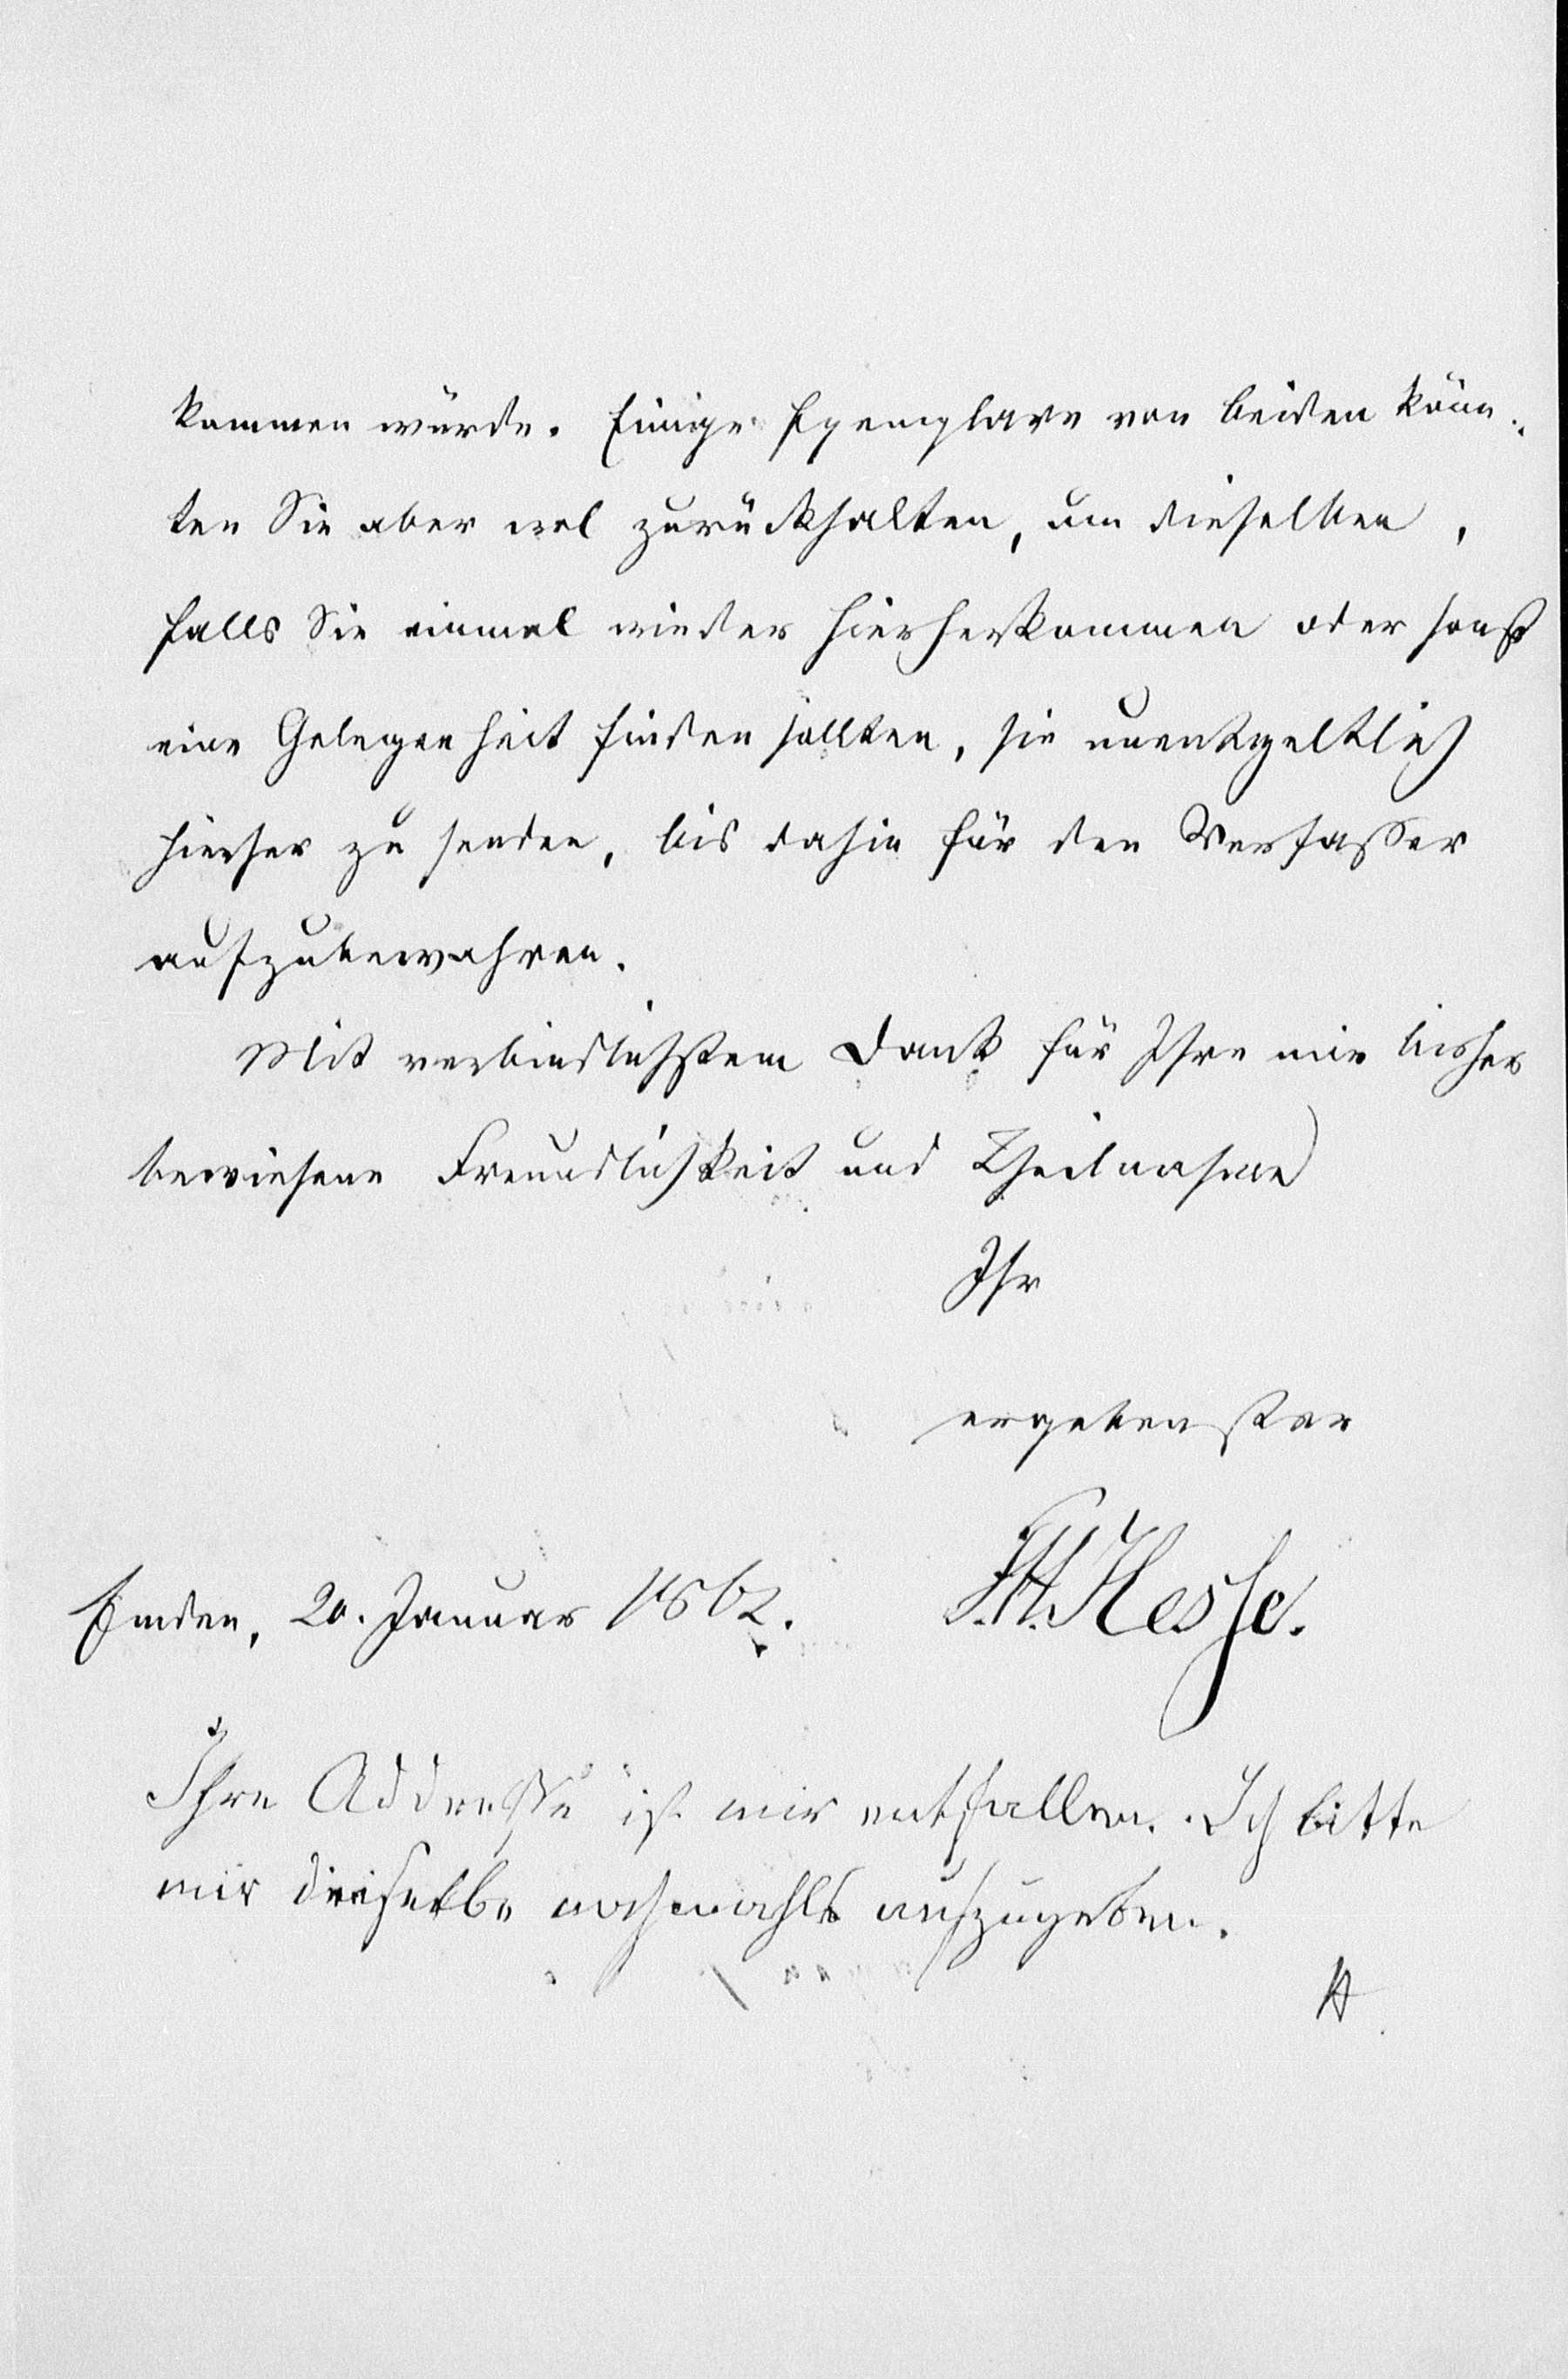 kommen würde. Einige Exemplare von beiden könn-
ten Sie aber wol zurückhalten, um dieselben,
falls Sie einmal wieder hierherkommen oder sonst
eine Gelegenheit finden sollten, sie unentgeltlich
hierher zu senden, bis dahin für den Verfasser
aufzubewahren.
Mit verbindlichstem Dank für Ihre mir bisher
bewiesene Freundlichkeit und Theilnahme
Ihr
ergebenster
Emden, 20. Januar 1862. F. H. Hesse.
Ihre Addresse ist mir entfallen. Ich bitte
mir dieselbe nochmahls aufzugeben.
H